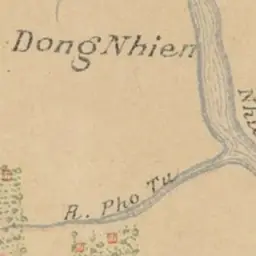 Dong Nhien
R. Pho Tu